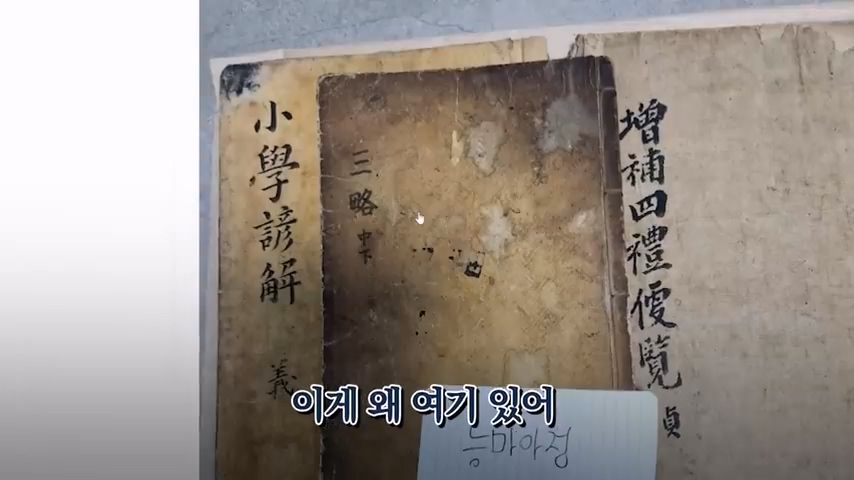 小學諺解
義
三略
中下
增補四禮便覽
貞
이게 왜 여기 있어
능마아정